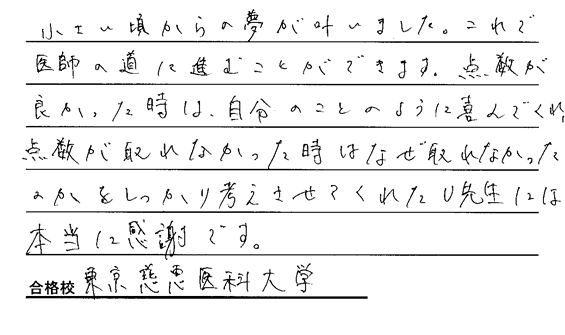 小さい頃からの夢が叶いました。これで
医師の道に進むことができます。点数が
良かった時は、自分のことのように喜んでくれ、
点数が取れなかった時はなぜ取れなかった
のかをしっかり考えさせてくれたU先生には
本当に感謝です。
合格校 東京慈恵医科大学